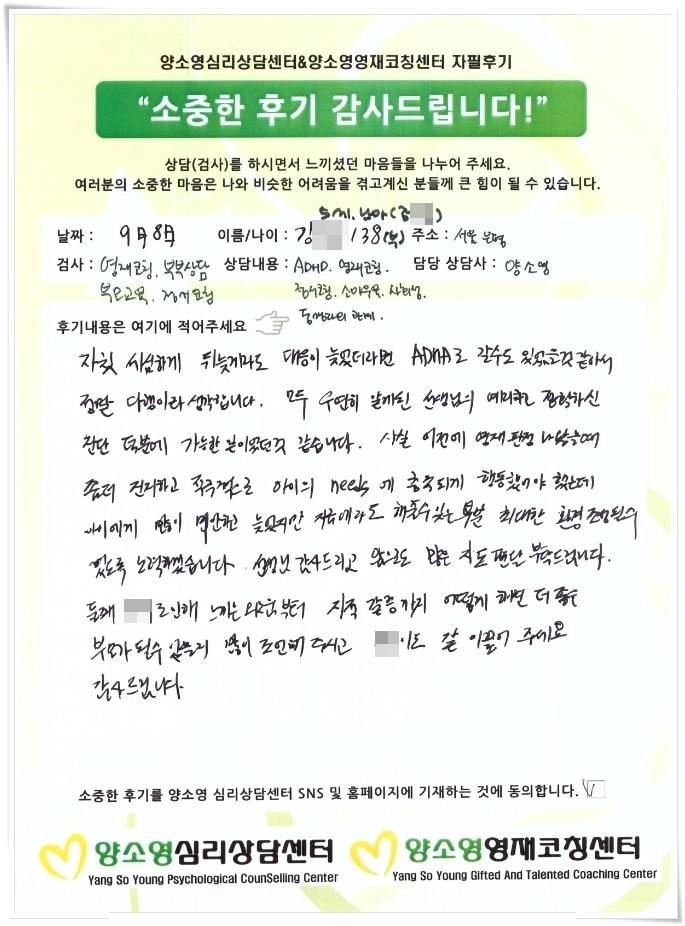 양소영심리상담센터&양소영영재코칭센터 자필후기
“소중한 후기 감사드립니다!”
상담(검사)를 하시면서 느끼셨던 마음들을 나누어 주세요.
여러분의 소중한 마음은 나와 비슷한 어려움을 겪고계신 분들께 큰 힘이 될 수 있습니다.
5세. 남아(김
날짜 : 9월 8일 이름/나이 : 김 /38(부) 주소 : 서울
검사 : 영재코칭, 부부상담 상담내용 : ADHD. 영재코칭. 담당 상담사 : 양소영
부모교육. 정서코칭 정서코칭. 사회성.
동생과의 관계.
후기내용은 여기에 적어주세요
자칫 시심하게 뒤늦게라도 대응이 늦었더라면 ADHD로 갈수도 있었을것 같아서
정말 다행이라 생각됩니다. 모두 우연히 알게된 선생님의 예리하고 정확하신
진단 덕분에 가능한 일이었던것 같습니다. 사실 이전에 영재 판정 나왔을때
좀더 진지하고 적극적으로 아이의 needs 에 충족되게 행동했어야 했는데
아이에게 많이 미안하고 늦었지만 지금에라도 해줄수있는 부분 최대한 환경 조성될수
있도록 노력하겠습니다. 선생님 감사드리고 앞으로도 많은 지도 편달 부탁드립니다.
둘째 로인해 느끼는 외로움부터 지적 갈증까지 어떻게 하면 더 좋은
부모가 될수 있을지 많이 조언해 주시고 이도 잘 이끌어 주세요
감사드립니다
소중한 후기를 양소영 심리상담센터 SNS 및 홈페이지에 기재하는 것에 동의합니다.
양소영심리상담센터 양소영영재코칭센터
Yang So Young Psychological CounSelling Center Yang So Young Gifted And Talented Coaching Center